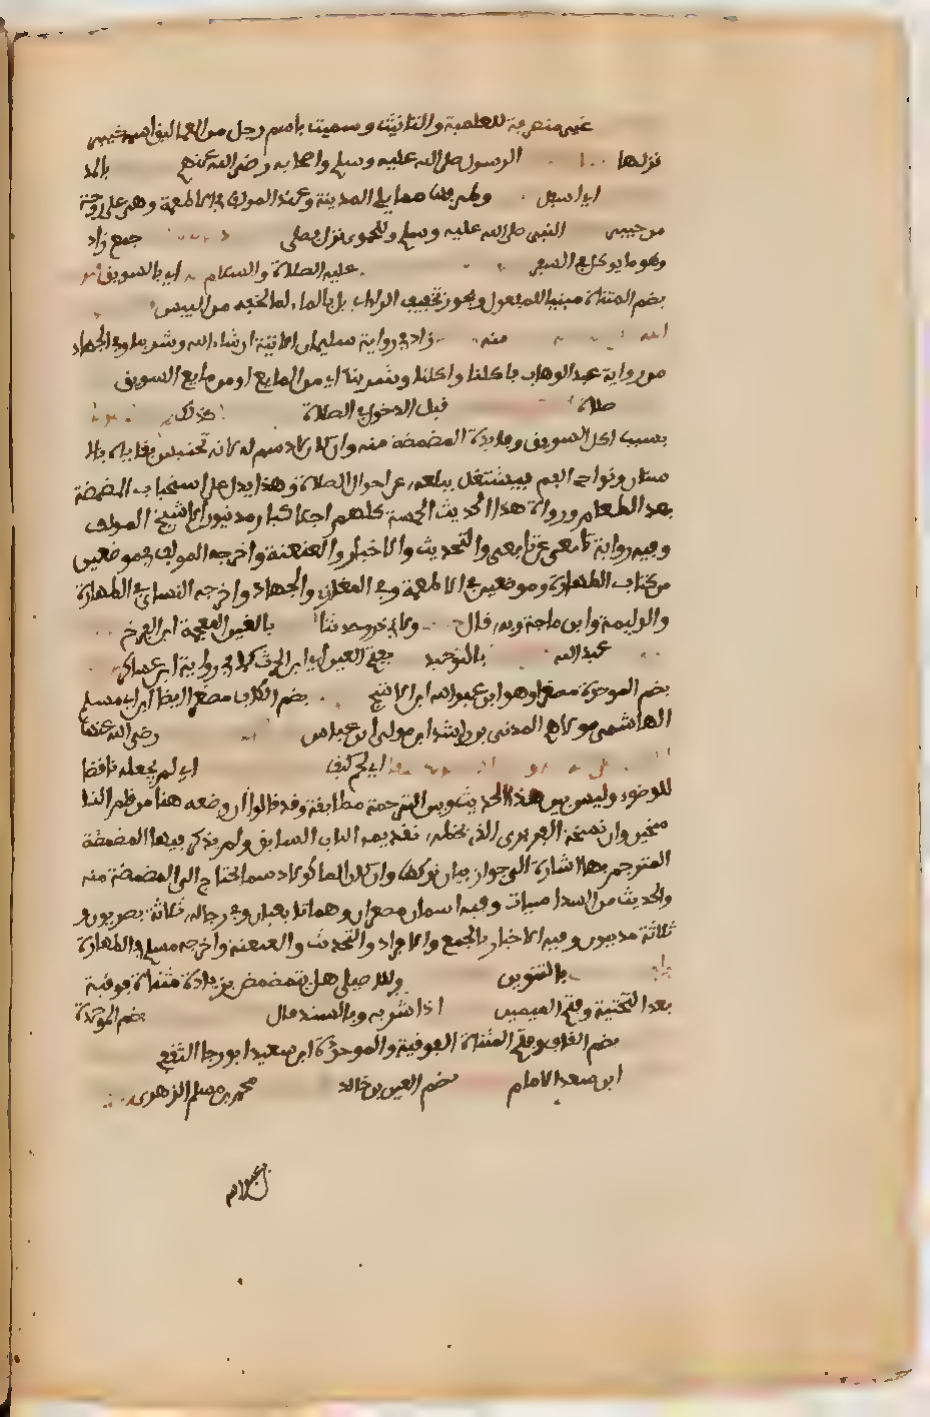 غير منصرفة للعلمية والتانيث وسميت باسم رجل من العماليق اسمه خيبر
نزلها الرسول صلى الله عليه وسلم واصحابه رضي الله عنهم بالمد
اي اسفل وطرفها مما يلي المدينة وعند المولف في الاطعمة وهي على روحة
من خيبر النبي صلى الله عليه وسلم وللحموي نزل فصلى جمع زاد
وهو ما يوكل في السفر عليه الصلاة والسلام اي بالسويق
بضم المثناة مبنيا للمفعول ويجوز تخفيف الراء اي بل بالماء لما لحقه من اليبس
منه زاد في رواية سليمان الاتية ان شاء الله وشربنا وفي الجهاد
من رواية عبد الوهاب فاكلنا واكلنا وشربنا اي من المايع او من مايع السويق
صلاة قبل الدخول في الصلاة كذلك
بسبب اكل السويق وفايدة المضمضة منه وان كان لا دسم له لانه تحتبس بقاياه بالا
سنان ونواحي الفم فيشتغل ببلعه عن احوال الصلاة وهذا يدل على استحباب المضمضة
بعد الطعام ورواة هذا الحديث الخمسة كلهم اجلا كبار مدنيون الا شيخ المولف
وفيه رواية تابعي عن تابعي والتحديث والاخبار والعنعنة واخرجه المولف في موضعين
من كتاب الطهارة وموضعين في الاطعمة وفي المغازي والجهاد واخرجه النساي في الطهارة
والوليمة وابن ماجة وبه قال ولابي ذر وحدثنا بالغين المعجمة ابن الفرج
عبد الله بالتوحيد بفتح العين اي ابن الحرث كما في رواية ابن عساكر
بضم الموحدة مصغرا وهو ابن عبد الله ابن الاشج بضم الكاف مصغر ايضا ابن ابي مسلم
الهاشمي مولاهم المدني بن راشد ابن مولى ابن عباس رضي الله عنهما
اي لحم كتف اي لم يجعله ناقضا
للوضوء وليس بين هذا الحديث وبين الترجمة مطابقة وقد قالوا ان وضعه هنا من قلم النا
سخين وان نسخة الفربري الذي بخطه تقديمه الباب السابق ولم يذكر فيها المضمضة
المترجم بها اشارة الى جواز بيان تركها وان كان الماكول دسما يحتاج الى المضمضة منه
والحديث من السداسيات وفيه اسمان مصغران وهما تابعيان وفي رجاله ثلاثة بصريون و
ثلاثة مدنيون وفيه الاخبار بالجمع والافراد والتحديث والعنعنة واخرجه مسلم في الطهارة
بالتنوين وللاصيلي هل يتمضمض بزيادة مثناة فوقية
بعد التحتية وفتح الميمين اذا شربه وبالسند قال بضم الموحدة
بضم القاف وفتح المثناة الفوقية والموحدة ابن سعيد ابو رجا الثقفي
ابن سعد الامام بضم العين بن خالد محمد بن مسلم الزهري